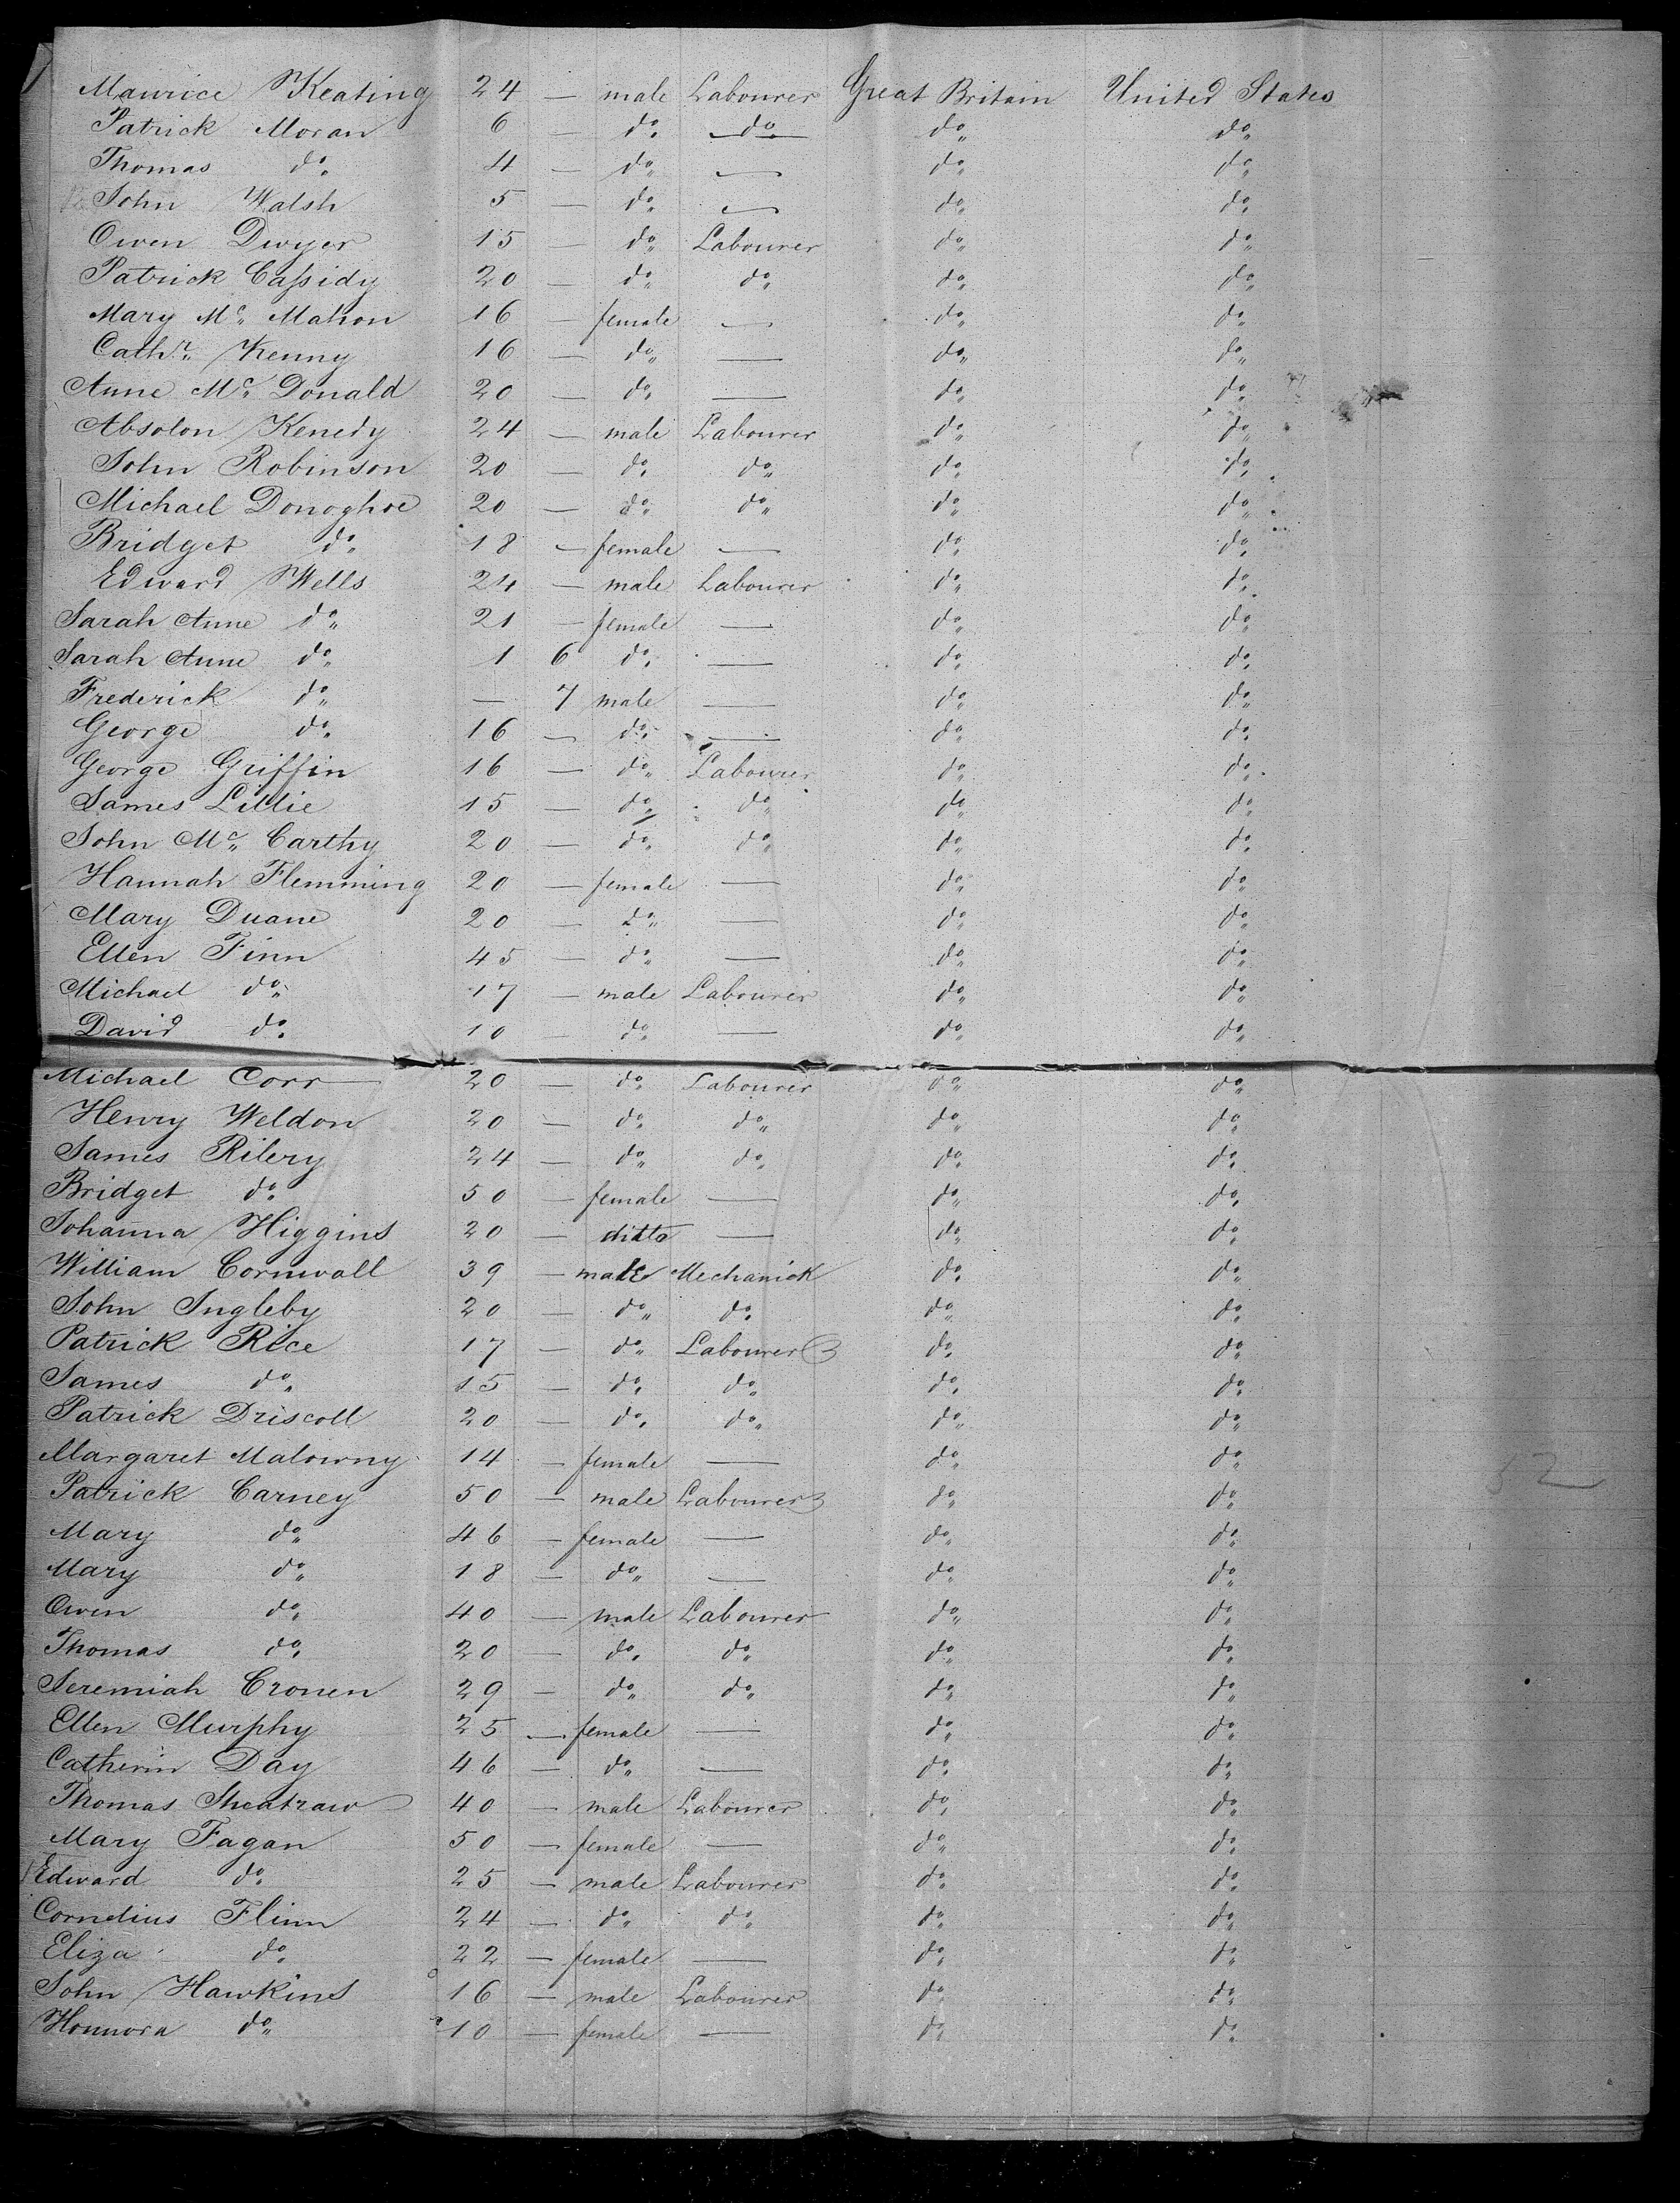 Maurice Keating 24 — male Labourer Great Britain United States
Patrick Moran 6 — do do do do
Thomas do 4 — do — do do
John Walsh 5 — do — do do
Owen Dwyer 15 — do Labourer do do
Patrick Cassidy 20 — do do do do
Mary Mc Mahon 16 — female — do do
Cathr Kenny 16 — do — do do
Anne Mc Donald 20 — do — do do
Absolon Kenedy 24 — male Labourer do do
John Robinson 20 — do do do do
Michael Donoghoe 20 — do do do do
Bridget do 18 — female — do do
Edward Wells 24 — male Labourer do do
Sarah Anne do 21 — female — do do
Sarah Anne do 1 6 do — do do
Frederick do — 7 male — do do
George do 16 — do — do do
George Griffin 16 — do Labourer do do
James Lillie 15 — do do do do
John Mc Carthy 20 — do do do do
Hannah Flemming 20 — female — do do
Mary Duane 20 — do — do do
Ellen Finn 45 — do — do do
Michael do 17 — male Labourer do do
David do 10 — do — do do
Michael Corr 20 — do Labourer do do
Henry Weldon 20 — do do do do
James Rilery 24 — do do do do
Bridget do 50 — female — do do
Johanna Higgins 20 — ditto — do do
William Cornwall 39 — male Mechanick do do
John Ingleby 20 — do do do do
Patrick Rice 17 — do Labourer do do
James do 15 — do do do do
Patrick Driscoll 20 — do do do do
Margaret Malowny 14 — female — do do
Patrick Carney 50 — male Labourer do do
Mary do 46 — female — do do
Mary do 18 — do — do do
Owen do 40 — male Labourer do do
Thomas do 20 — do do do do
Jeremiah Cronen 29 — do do do do
Ellen Murphy 25 — female — do do
Catherin Day 46 — do — do do
Thomas Sheatraw 40 — male Labourer do do
Mary Fagan 50 — female — do do
Edward do 25 — male Labourer do do
Cornelius Flinn 24 — do do do do
Eliza do 22 — female — do do
John Hawkins 16 — male Labourer do do
Honnora do 10 — female — do do
52